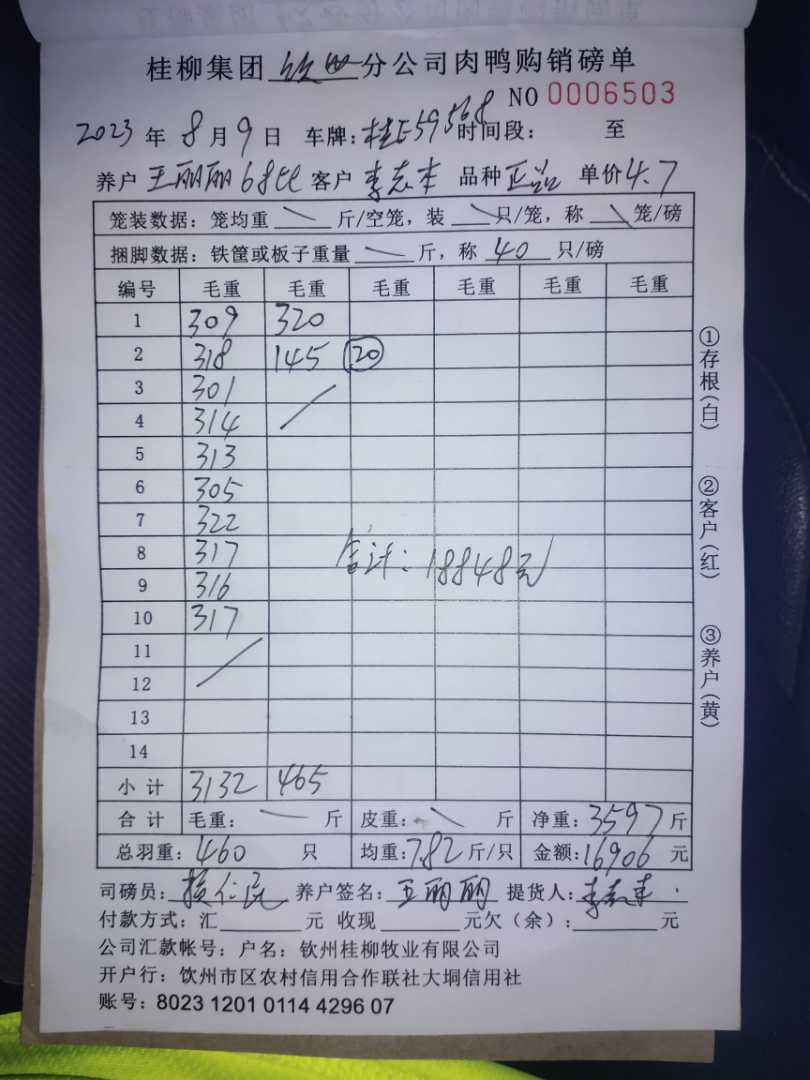 桂柳集团 钦州 分公司肉鸭购销磅单
NO 0006503
2023 年 8 月 9 日 车牌: 桂E59568 时间段: 至
养户 王丽丽68the 客户 李志本 品种 正品 单价 4.7
笼装数据: 笼均重 斤/空笼, 装 只/笼, 称 笼/磅
捆脚数据: 铁筐或板子重量 斤, 称 40 只/磅
编号 毛重 毛重 毛重 毛重 毛重 毛重
1 309 320
2 318 145 20
3 301
4 314
5 313
6 305
7 322
8 317
9 316
10 317
11
12
13
14
合计: 18848元
小计 3132 465
合计 毛重: 斤 皮重: 斤 净重: 3597 斤
总羽重: 460 只 均重: 7.82 斤/只 金额: 16906 元
司磅员: 养户签名: 王丽丽 提货人:
付款方式: 汇 元 收现 元欠(余): 元
公司汇款帐号: 户名: 钦州桂柳牧业有限公司
开户行: 钦州市区农村信用合作联社大垌信用社
账号: 8023 1201 0114 4296 07
①存根(白)
②客户(红)
③养户(黄)